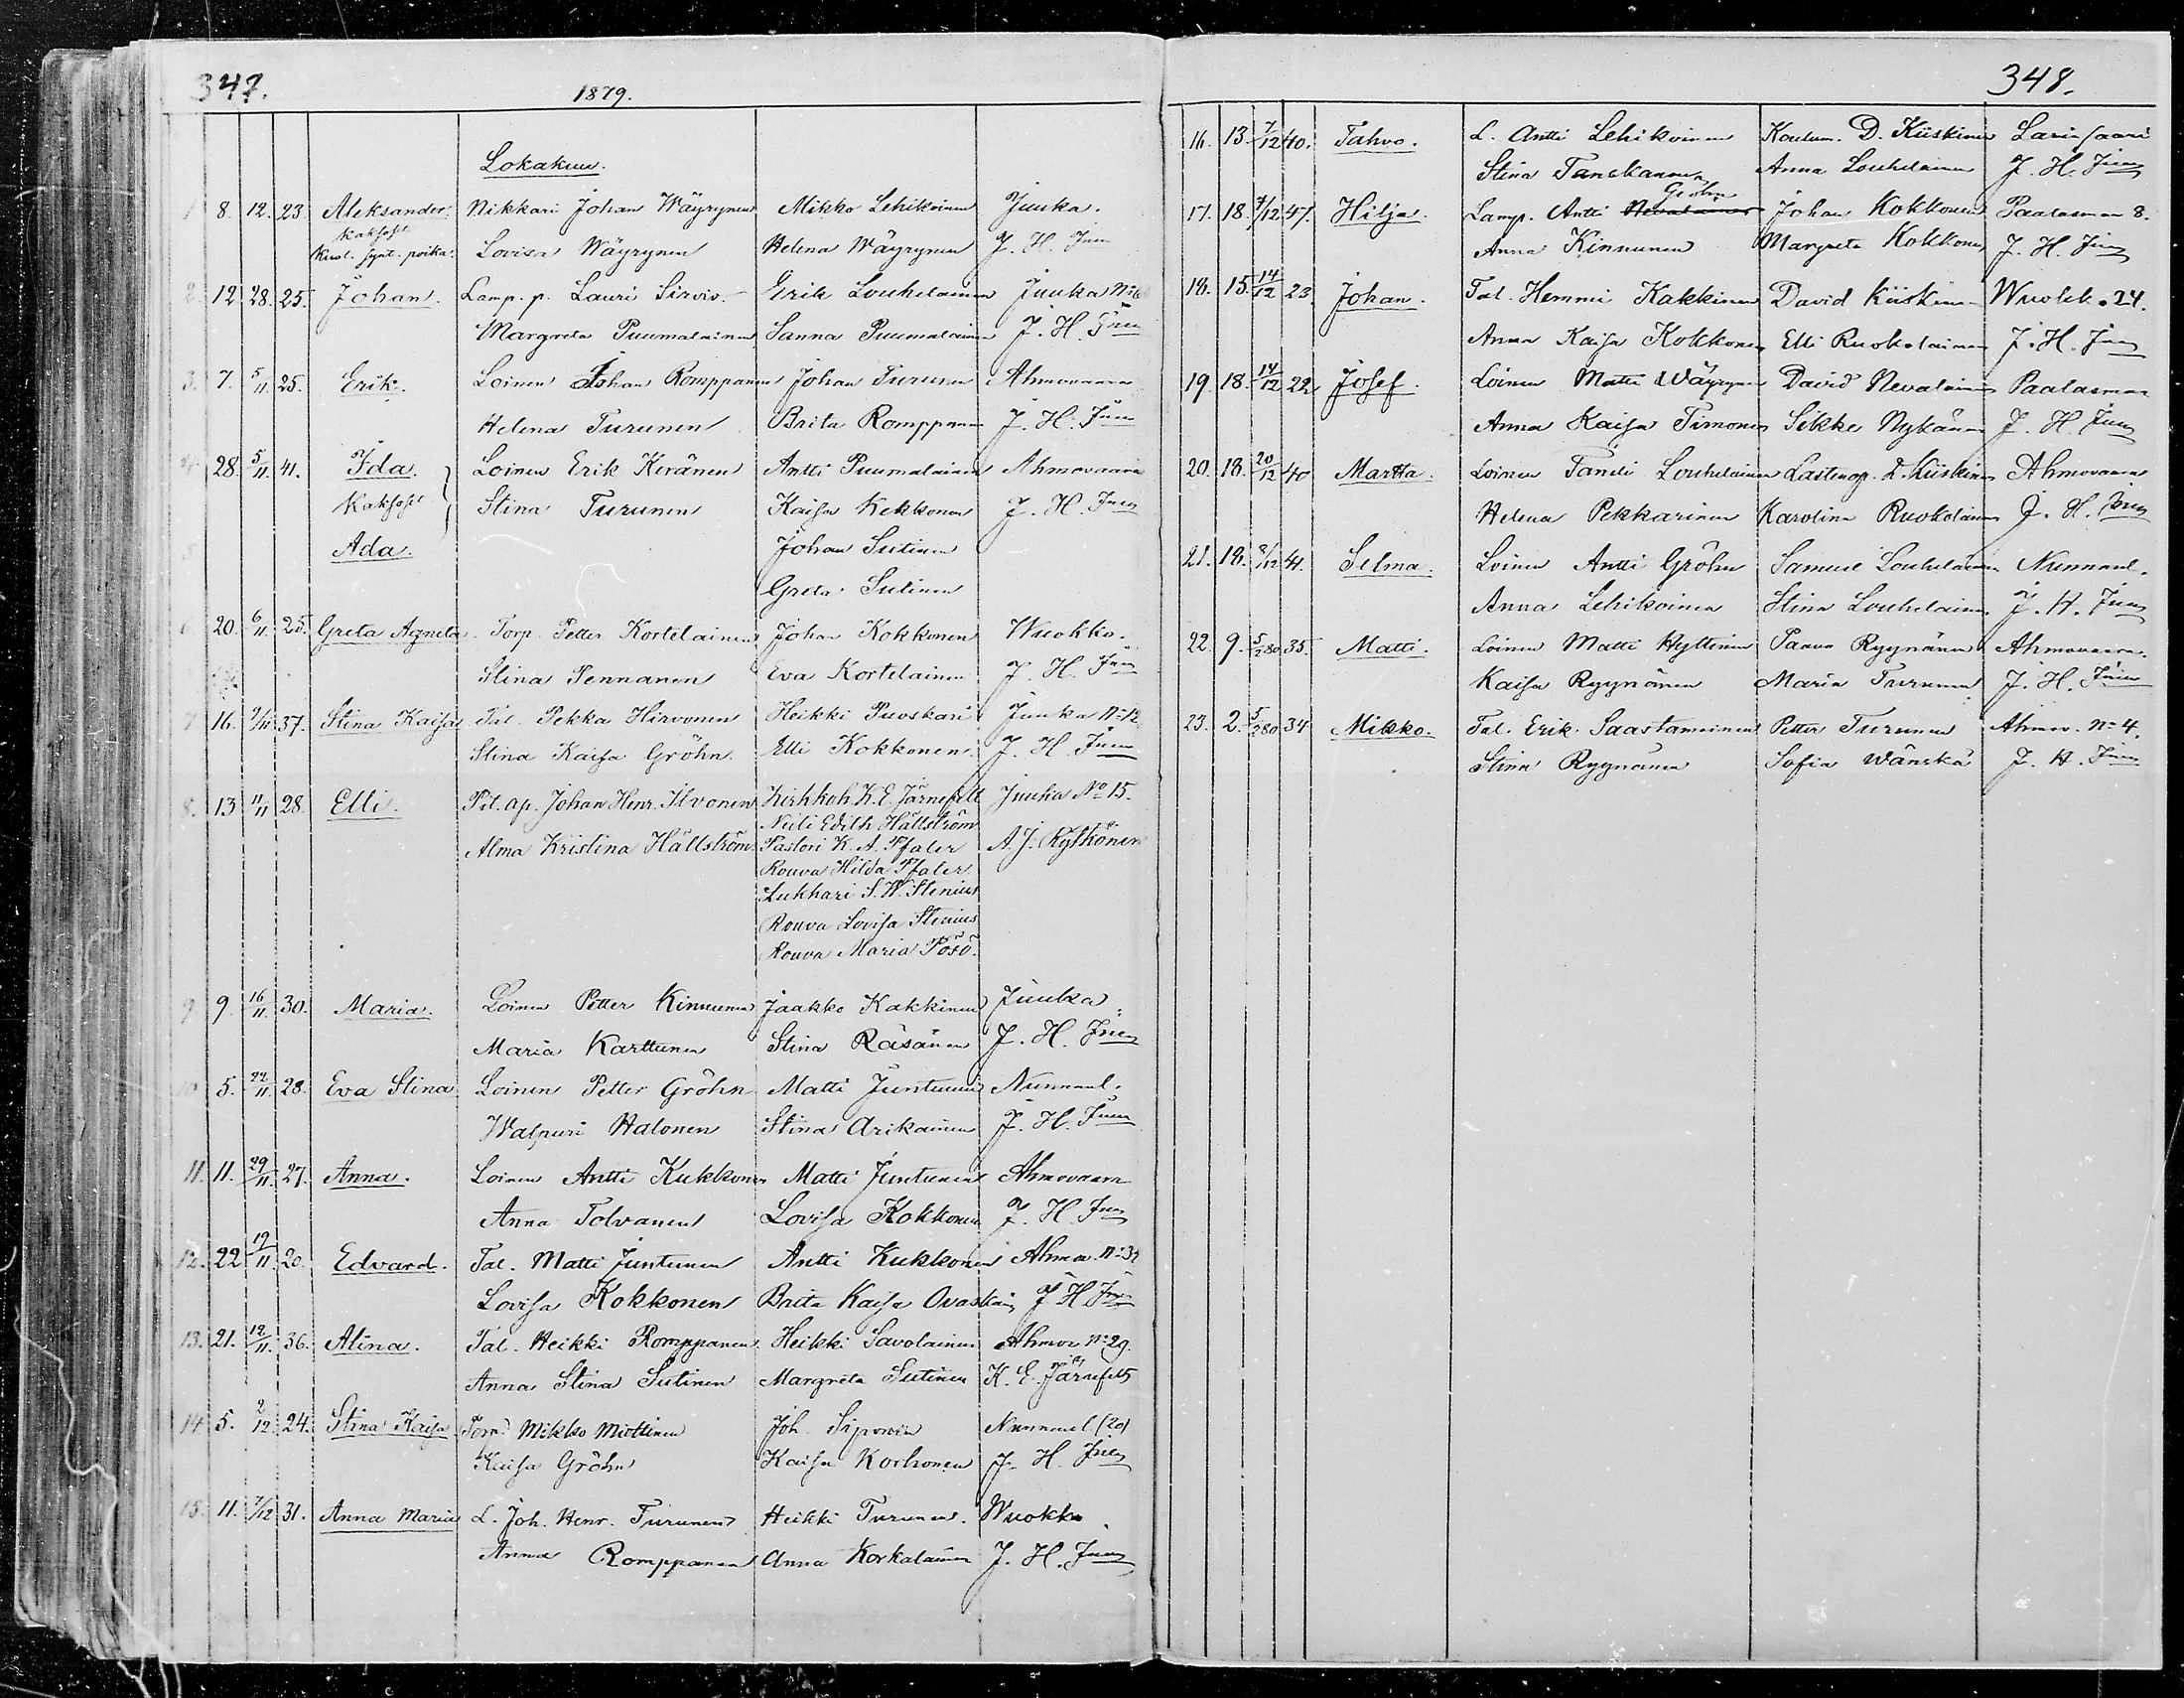 347.
1879.
Lokakuu.
1 8. 12. 23. Aleksander. Nikkari Johan Wäyrynen Mikko Lehikoinen Juuka.
kaksoset
kuol. synt. poika. Lovisa Wäyrynen Helena Wäyrynen J. H. Juu
2. 12 28. 25. Johan. Lamp. p. Lauri Sirvio. Erik Louhelainen Juuka
Margreta Puumalainen Sanna Puumalainen J. H. Juu
3. 7. 5/11. 25. Erik. Loinen Johan Romppanen Johan Turunen Ahmovaara
Helena Turunen Brita Romppanen J. H. Juu
4. 28. 5/11. 41. Ida. Loinen Erik Keränen Antti Puumalainen Ahmovaara
Kaksoset Stina Turunen Kaisa Kekkonen J. H. Juu
5 Ada. Johan Sutinen
Greta Sutinen
6 20. 6/11. 25. Greta Agneta Torp. Petter Kortelainen Johan Kokkonen Wuokko.
Stina Pennanen Eva Kortelainen J. H. Juu
7 16. 9/11. 37. Stina Kaisa Tal. Pekka Hirvonen Heikki Puoskari Juuka No 12
Stina Kaisa Gröhn. Elli Kokkonen. J. H. Juu
8. 13 11/11 28. Elli. Pit. ap. Johan Henr. Ilvonen Kirkkoh. K. E. Järnefelt Juuka No 15.
Neiti Edith Hällström
Alma Kristina Hällström. Pastori K. A. Pfaler A. J. Kytkönen
Rouva Hilda Pfaler.
Lukkari S. W. Stenius
Rouva Lovisa Stenius
Rouva Maria Pösö.
9 9. 16/11. 30. Maria. Loinen Petter Kinnunen Jaakko Kakkinen Juuka
Maria Karttunen Stina Räsänen J. H. Juu
10 5. 22/11. 28. Eva Stina Loinen Petter Gröhn Matti Juntunen Nunnanl.
Walpuri Halonen Stina Arikainen J. H. Juu
11. 11. 29/11. 27. Anna. Loinen Antti Kukkonen Matti Juntunen Ahmovaara
Anna Tolvanen Lovisa Kokkonen J. H. Juu
12. 22 19/11. 20. Edvard. Tal. Matti Juntunen Antti Kukkonen Ahmov.
Lovisa Kokkonen Brita Kaisa Ovaskain J H Juu
13. 21. 12/11. 36. Alina. Tal. Heikki Romppanen. Heikki Savolainen Ahmov No 29.
Anna Stina Sutinen Margreta Sutinen K. E. Järnefelt
14 5. 2/12. 24. Stina Kaisa Mikko Miettinen Joh. Siponen Nunnanl. (20)
Kaisa Gröhn Kaisa Korhonen J. H. Juu
15. 11. 7/12 31. Anna Maria L. Joh. Henr. Turunen Heikki Turunen. Wuokko.
Anna Romppanen Anna Korkalainen J. H. Juu
348.
16. 13. 7/12 40. Tahvo. L. Antti Lehikoinen Koulum. D. Kiiskinen Larinsaari
Stina Tanskanen Anna Louhelainen J. H. Juu
Gröhn
17. 18. 7/12 47. Hilja. Lamp. Antti Nevalainen Johan Kokkonen Paalasmaa 8.
Anna Kinnunen Margreta Kokkonen J. H. Juu
18. 15. 14/12 23 Johan. Tal. Hemmi Kakkinen David Kiiskinen Wuokk. 24.
Anna Kaisa Kokkonen Elli Ruokolainen J. H. Juu
19. 18. 14/12 22. Josef. Loinen Matti Wäyrynen David Nevalainen Paalasmaa
Anna Kaisa Timonen Sikke Nykänen J. H. Juu
20. 18. 20/12 40 Martta. Loinen Taneli Louhelainen Lastenop. D. Kiiskinen Ahmovaara
Helena Pekkarinen Karolina Ruokolainen J. H. Juu
21. 18. 8/12 41. Selma. Loinen Antti Gröhn Samuel Louhelainen Nunnanl.
Anna Lehikoinen Stina Louhelainen J. H. Juu
22. 9. 5/2 80 35. Matti. Loinen Matti Hyttinen Paavo Ryynänen Ahmovaara.
Kaisa Ryynänen Maria Turunen J. H. Juu
23. 2. 5/2 80 34 Mikko. Tal. Erik Saastamoinen Petter Turunen Ahmov. No 4.
Stina Ryynänen Sofia Wänskä J. H. Juu